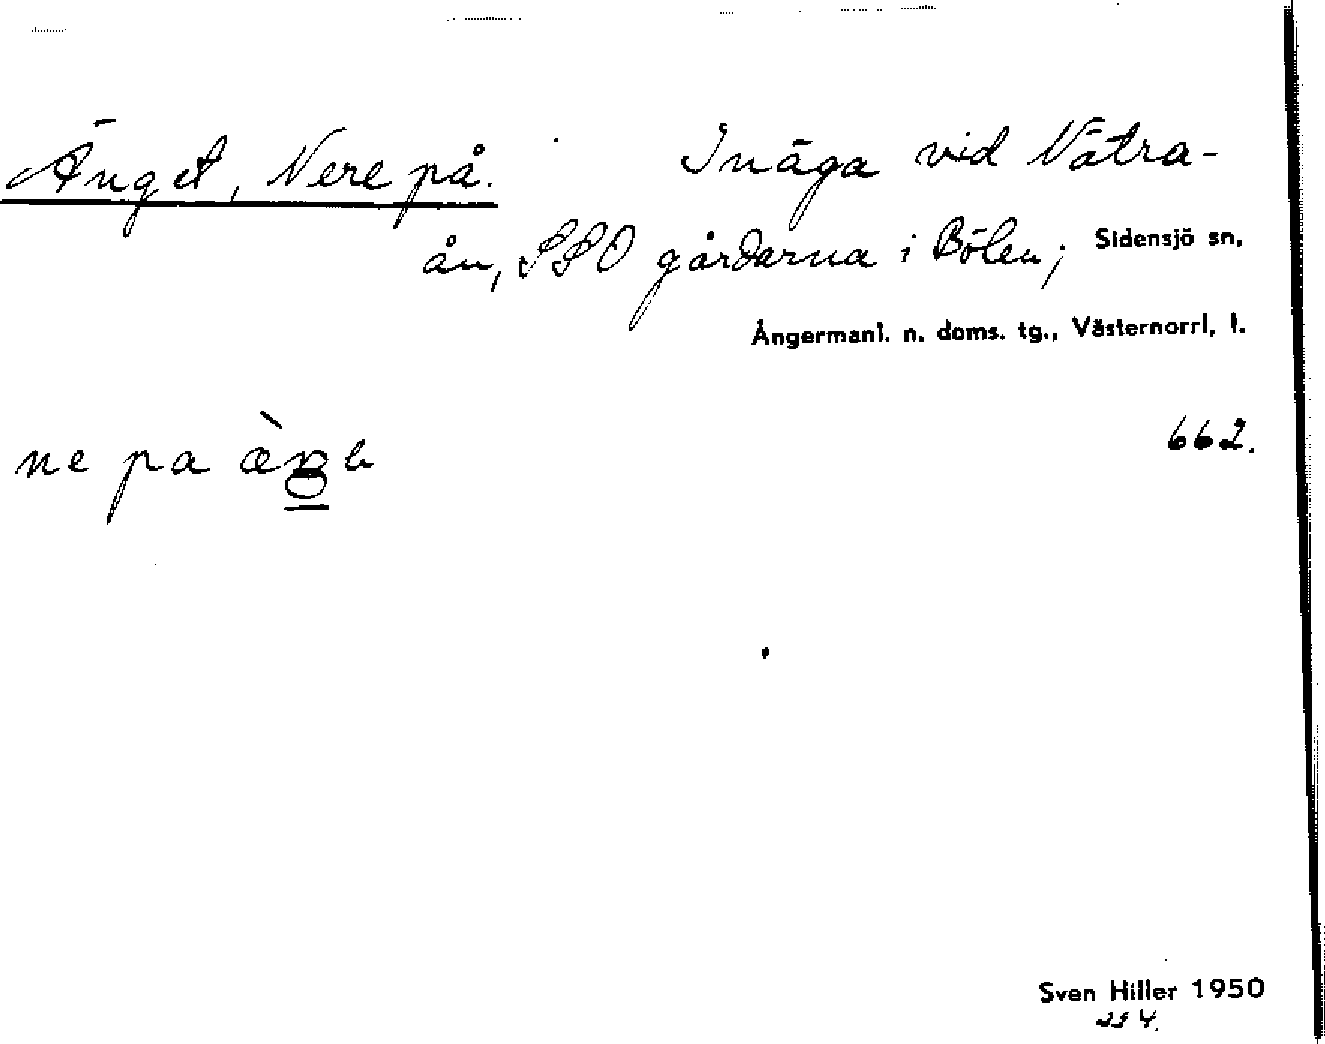 Änget, Nere på. Inäga vid Nätra-
ån, SSO gårdarna i Bölen; Sidensjö sn.
Ångermanl. n. doms. tg., Västernorrl. l.
662.
ne pa
Sven Hiller 1950